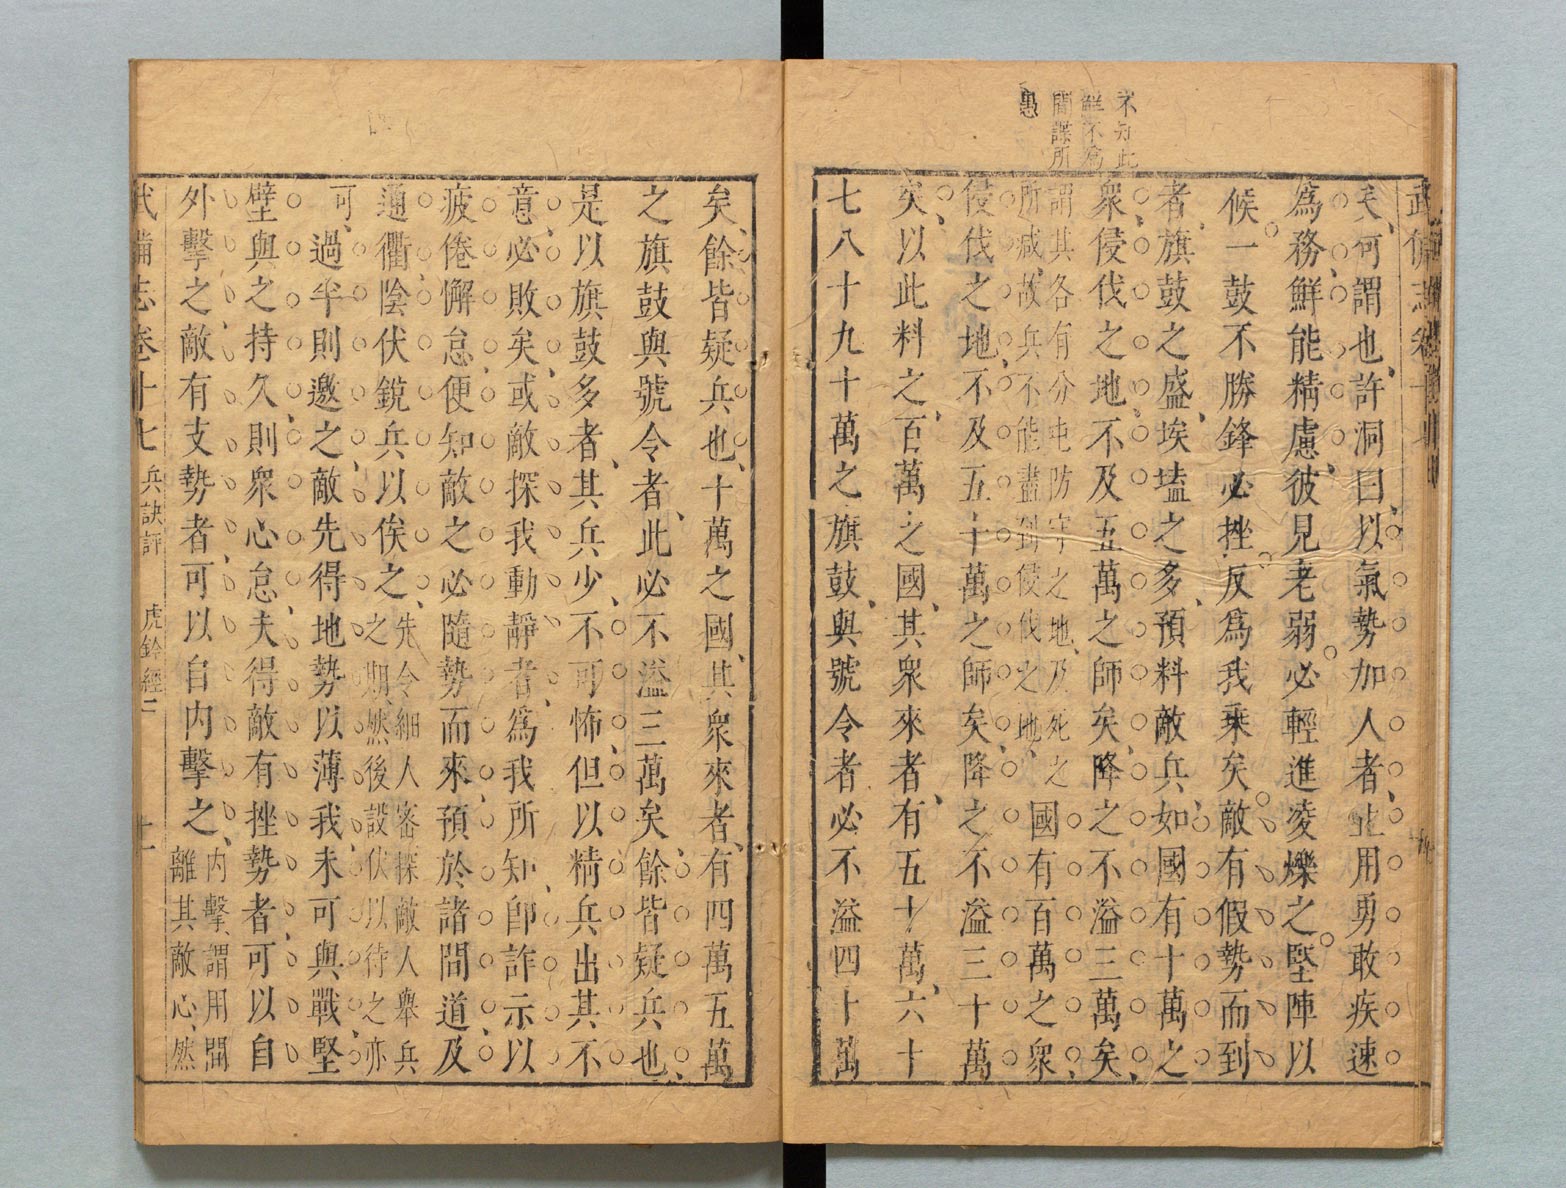 不知此
鮮不為
間諜所
愚
武備志卷十
矣何謂也許洞曰以氣勢加人者止用勇敢疾速
爲務鮮能精慮彼見老弱必輕進凌爍之堅陣以
候一鼓不勝鋒必挫反爲我乗矣敵有假勢而到
者旗鼓之盛埃壒之多預料敵兵如國有十萬之
衆侵伐之地不及五萬之師矣降之不溢三萬矣
謂其各有分屯防守之地及死之
所減故兵不能盡到侵伐之地
國有百萬之衆
侵伐之地不及五十萬之師矣降之不溢三十萬
矣以此料之百萬之國其衆來者有五十萬六十
七八十九十萬之旗鼓與號令者必不溢四十萬
矣餘皆疑兵也十萬之國其衆來者有四萬五萬
之旗鼓與號令者此必不溢三萬矣餘皆疑兵也
是以旗鼓多者其兵少不可怖但以精兵出其不
意必敗矣或敵探我動靜者爲我所知卽詐示以
疲倦懈怠便知敵之必隨勢而來預於諸間道及
通衢陰伏銳兵以俟之
先令細人審探敵人舉兵
之期然後設伏以待之亦
可過半則邀之敵先得地勢以薄我未可與戰堅
壁與之持久則衆心怠夫得敵有挫勢者可以自
外擊之敵有支勢者可以自内擊之
内擊謂用間
離其敵心然
武備志卷十七 兵訣評 虎鈐經二 十一